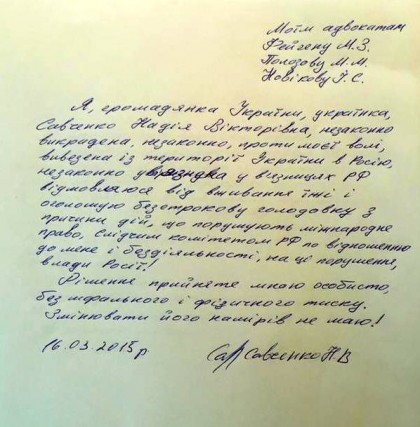 Моїм адвокатам
Фейгену М.З.
Полозову М.М.
Новікову І.С.
Я, громадянка України, українка,
Савченко Надія Вікторівна, незаконно
викрадена, незаконно, проти моєї волі,
вивезена із території України в Росію,
незаконно ув'язнена у в'язницях РФ
відмовляюся від вживання їжі і
оголошую безстрокову голодовку з
причини дій, що порушують міжнародне
право, Слідчим комітетом РФ по відношенню
до мене і бездіяльності, на це порушення,
влади Росії!
Рішення прийняте мною особисто,
без морального і фізичного тиску.
Змінювати його намірів не маю!
16.03.2015 р. Савченко Н.В